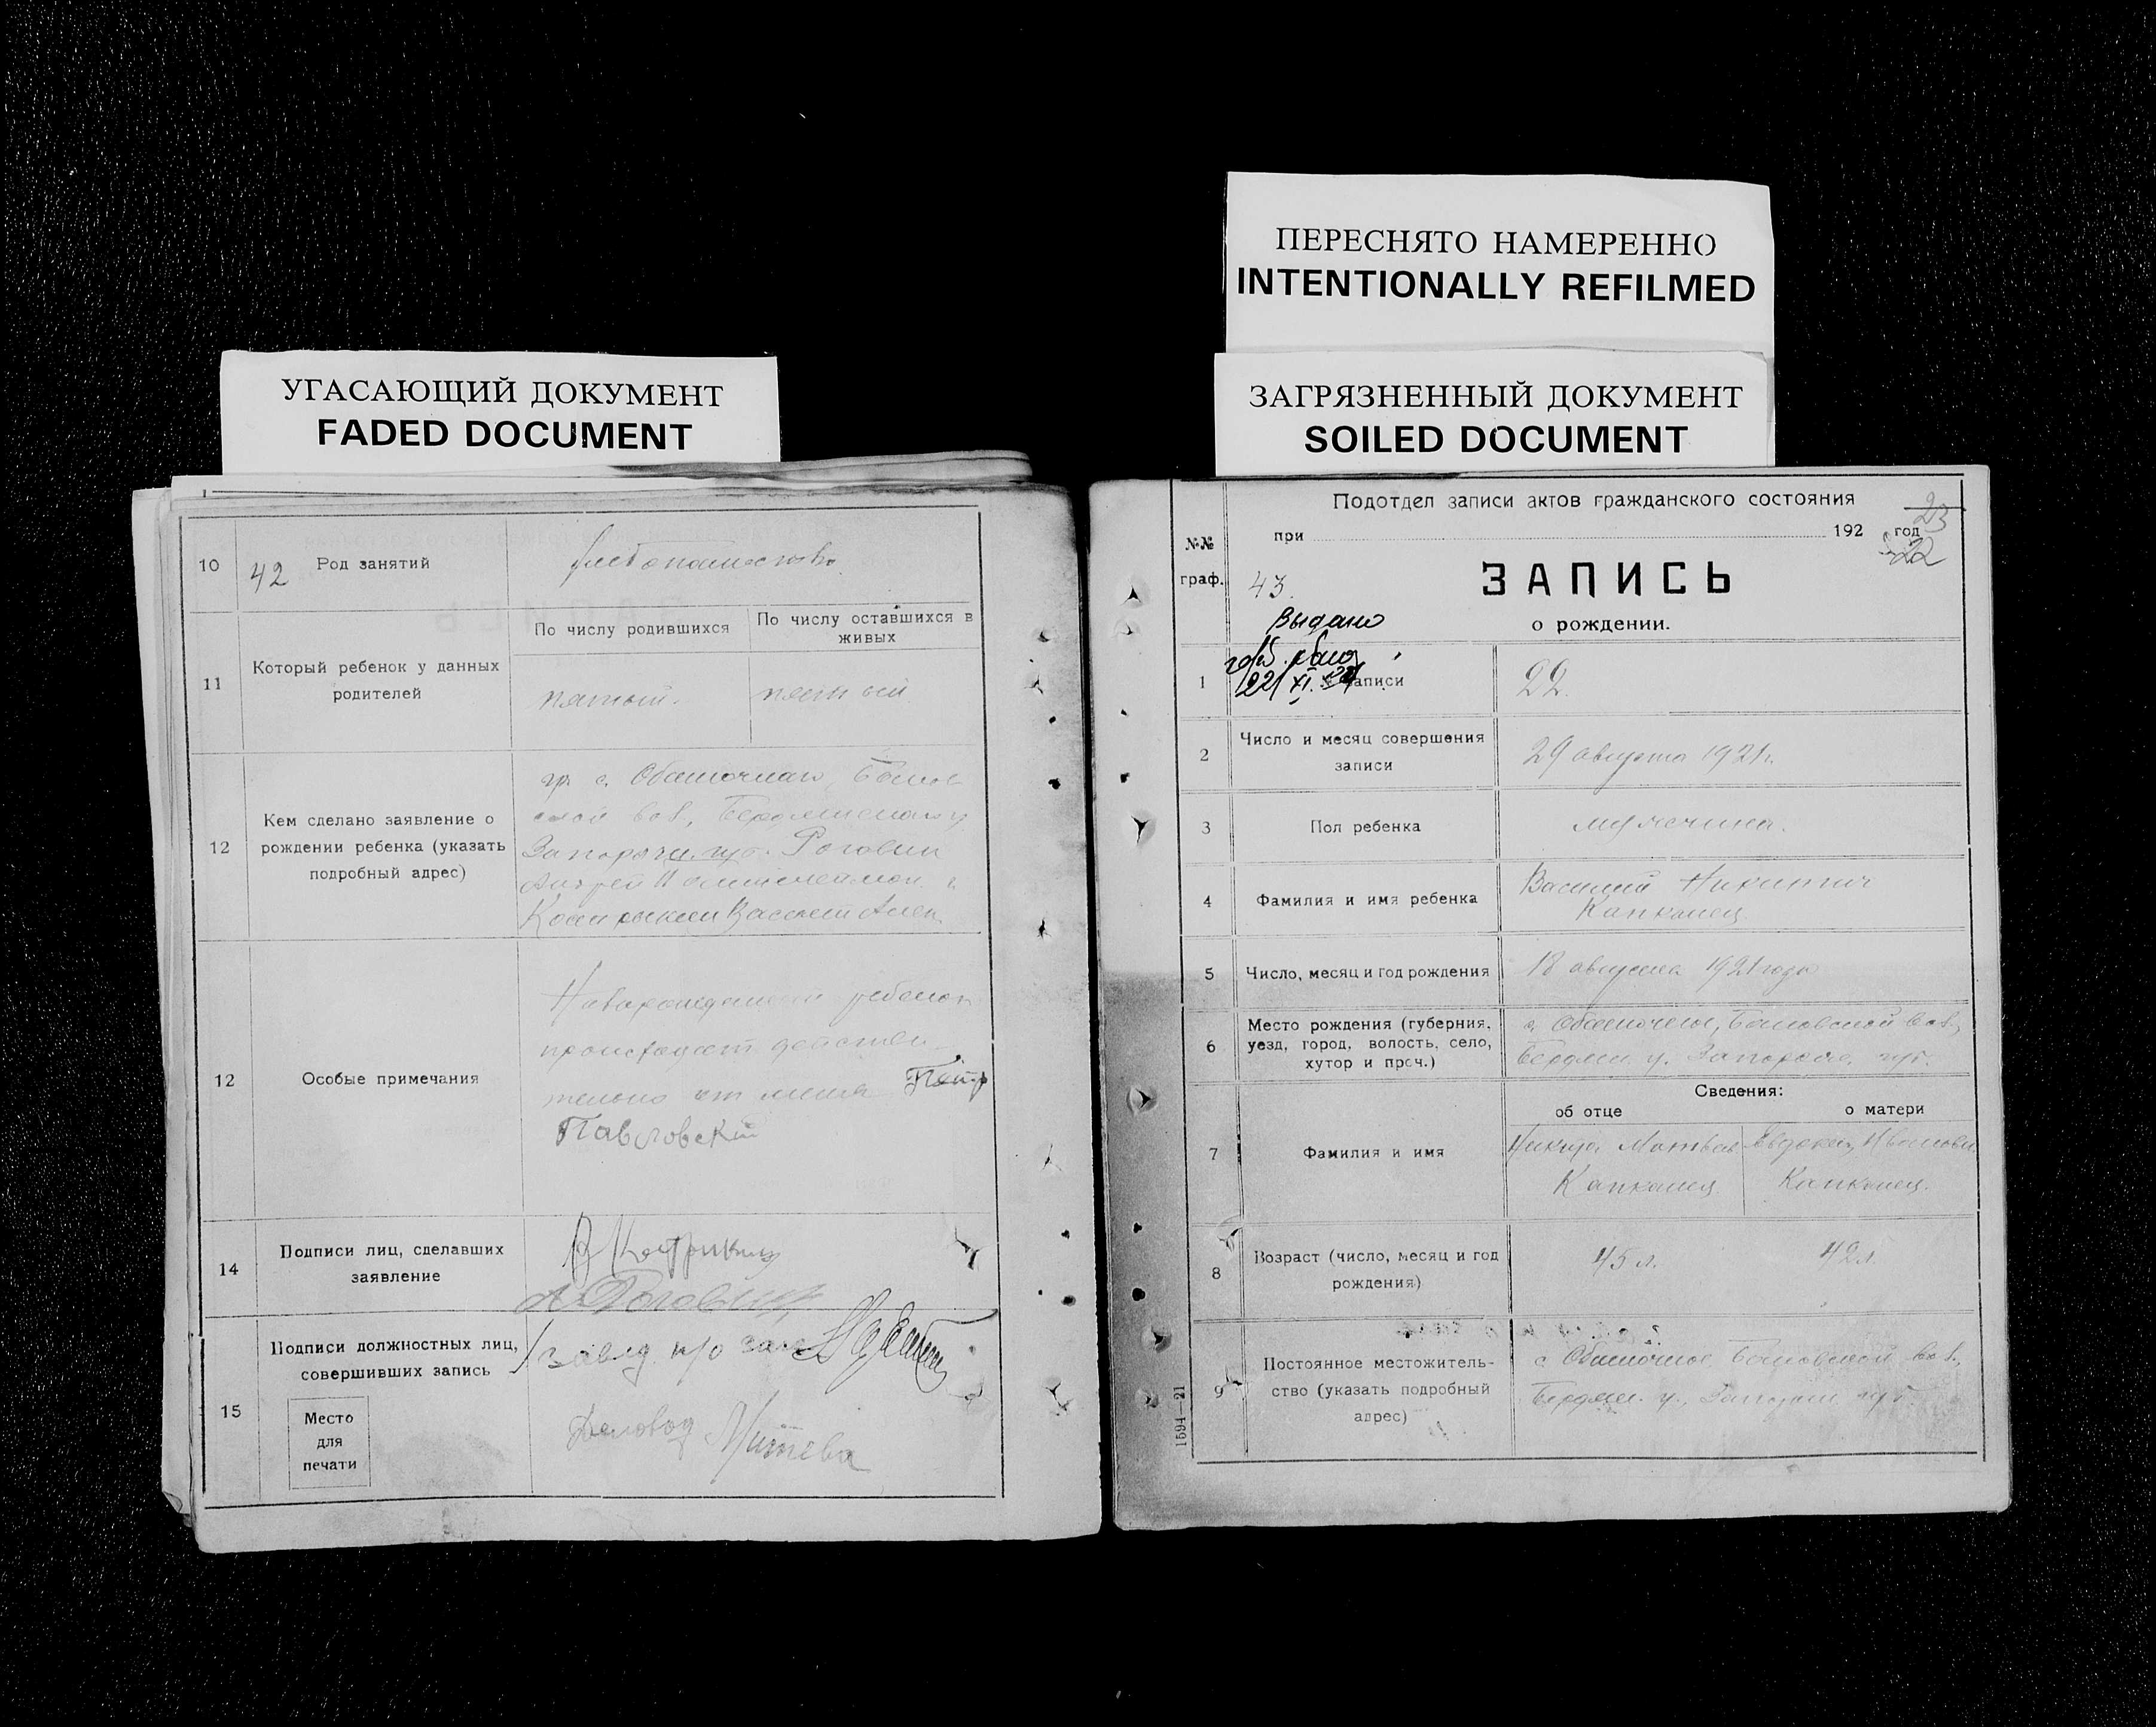 УГАСАЮЩИЙ ДОКУМЕНТ
FADED DOCUMENT
10
42
Род занятий
хлебопашество
11
Который ребенок у данных
родителей
По числу родившихся
По числу оставшихся в
живых
пятый.
пятый
12
Кем сделано заявление о
рождении ребенка (указать
подробный адрес)
гр. с. Обиточнаго,
вол.,
Роговин
Андрей
12
Особые примечания
Новорожденный ребенок
происходит действи-
тельно от меня Петр
Павловский
14
Подписи лиц, сделавших
заявление
А. Роговин
15
Подписи должностных лиц,
совершивших запись
Место
для
печати
завед. п/о
Деловод
ПЕРЕСНЯТО НАМЕРЕННО
INTENTIONALLY REFILMED
ЗАГРЯЗНЕННЫЙ ДОКУМЕНТ
SOILED DOCUMENT
Подотдел записи актов гражданского состояния
23
при 192 год
22
№№
граф.
43.
ЗАПИСЬ
о рождении.
Выдано
1
записи
22.
2
Число и месяц совершения
записи
29 августа 1921 г.
3
Пол ребенка
мужчина.
4
Фамилия и имя ребенка
Василий Никитич
Капканец
5
Число, месяц и год рождения
18 августа 1921 года
6
Место рождения (губерния,
уезд, город, волость, село,
хутор и проч.)
с. Обиточное, вол.,
Бердян. у. губ.
Сведения:
об отце
о матери
7
Фамилия и имя
Никита Матвев.
Капканец
Евдокия Иванови.
Капканец.
8
Возраст (число, месяц и год
рождения)
45 л.
42 л.
9
Постоянное местожитель-
ство (указать подробный
адрес)
с. Обиточное, вол.,
Бердян. у., губ.
1594—21